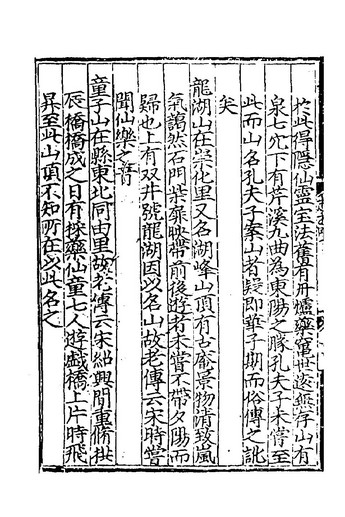 於此得隱仙靈宝法舊有丹爐藥竈世遠無存山有
泉七穴下有芹溪九曲為東陽之勝孔夫子未嘗至
此而山名孔夫子案山者疑即華子期而俗傳之訛
矣
龍湖山在崇化里又名湖峰山頂有古庵景物清致嵐
氣藹然石門柴扉映帶前後遊者未嘗不帶夕陽而
歸也上有双井號龍湖因以名山故老傳云宋時嘗
聞仙樂之音
童子山在縣東北同由里故老傳云宋紹興間重脩拱
辰橋橋成之日有採藥仙童七人遊戲橋上片時飛
昇至此山頂不知所在以此名之